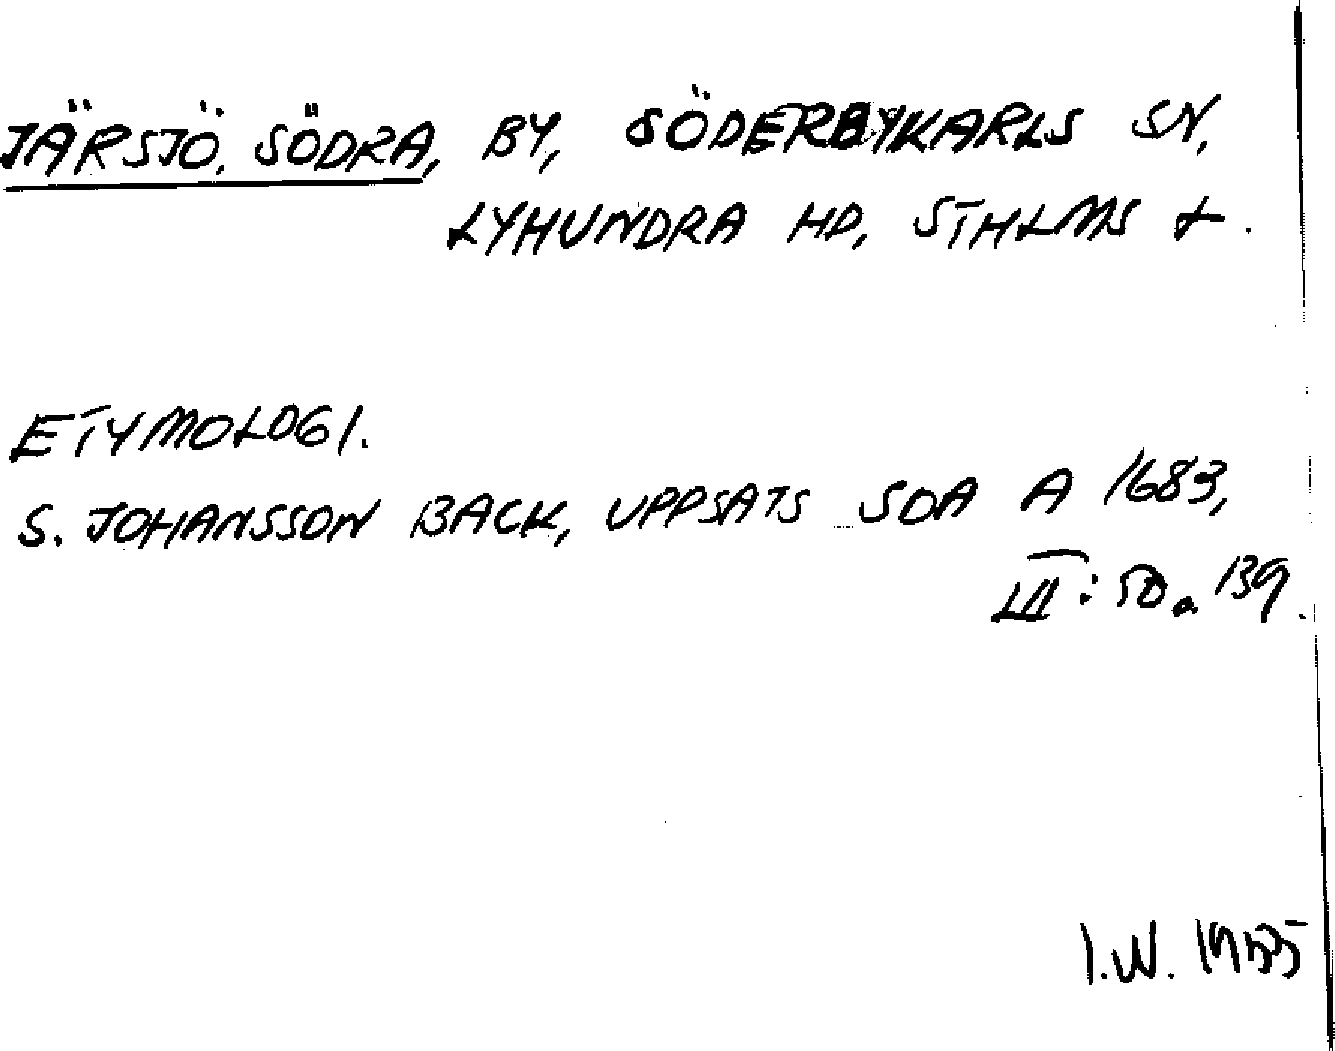 JÄRSJÖ, SÖDRA, BY, SÖDERBYKARLS SN,
LYHUNDRA HD, STHLMS L.
ETYMOLOGI.
S. JOHANSSON BACK, UPPSATS SOA A 1683,
139.
I.W. 1985